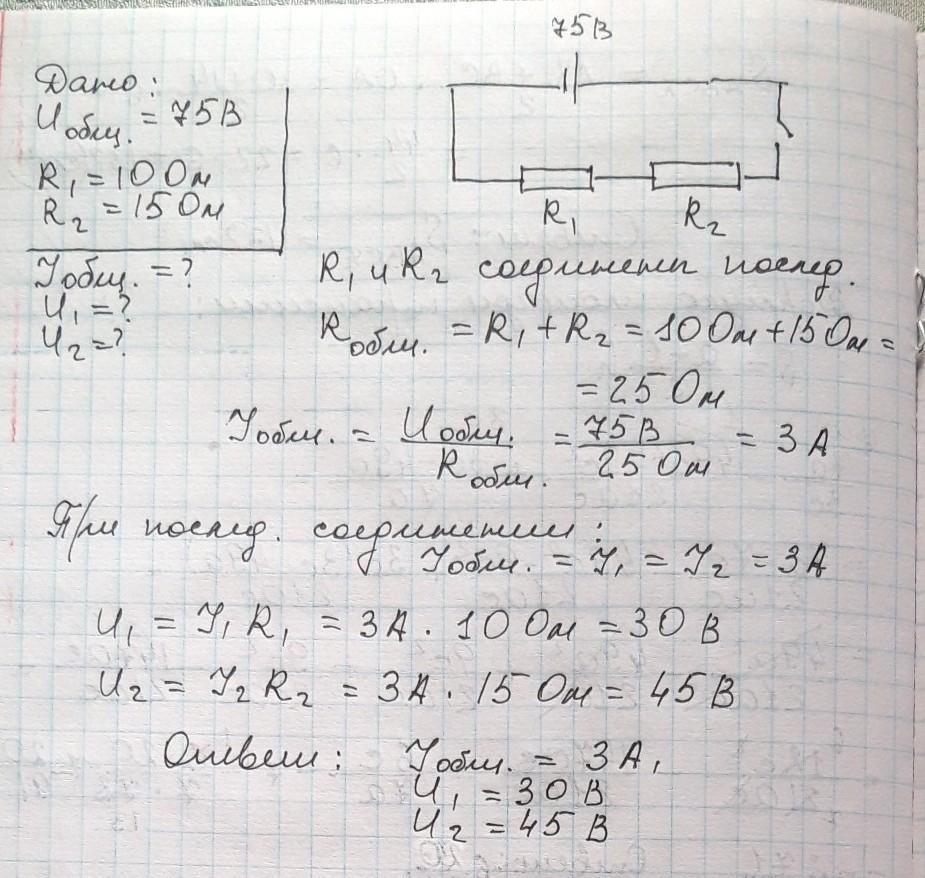 75В
Дано:
Uобщ. = 75В
R₁ = 10 Ом
R₂ = 15 Ом
Iобщ. = ?
U₁ = ?
U₂ = ?
R₁ R₂
R₁ и R₂ соединены послед.
Rобщ. = R₁ + R₂ = 10 Ом + 15 Ом =
= 25 Ом
Iобщ. = Uобщ. / Rобщ. = 75В / 25 Ом = 3 А
При послед. соединении:
Iобщ. = I₁ = I₂ = 3А
U₁ = I₁ R₁ = 3А · 10 Ом = 30 В
U₂ = I₂ R₂ = 3А · 15 Ом = 45 В
Ответ: Iобщ. = 3 А,
U₁ = 30 В
U₂ = 45 В